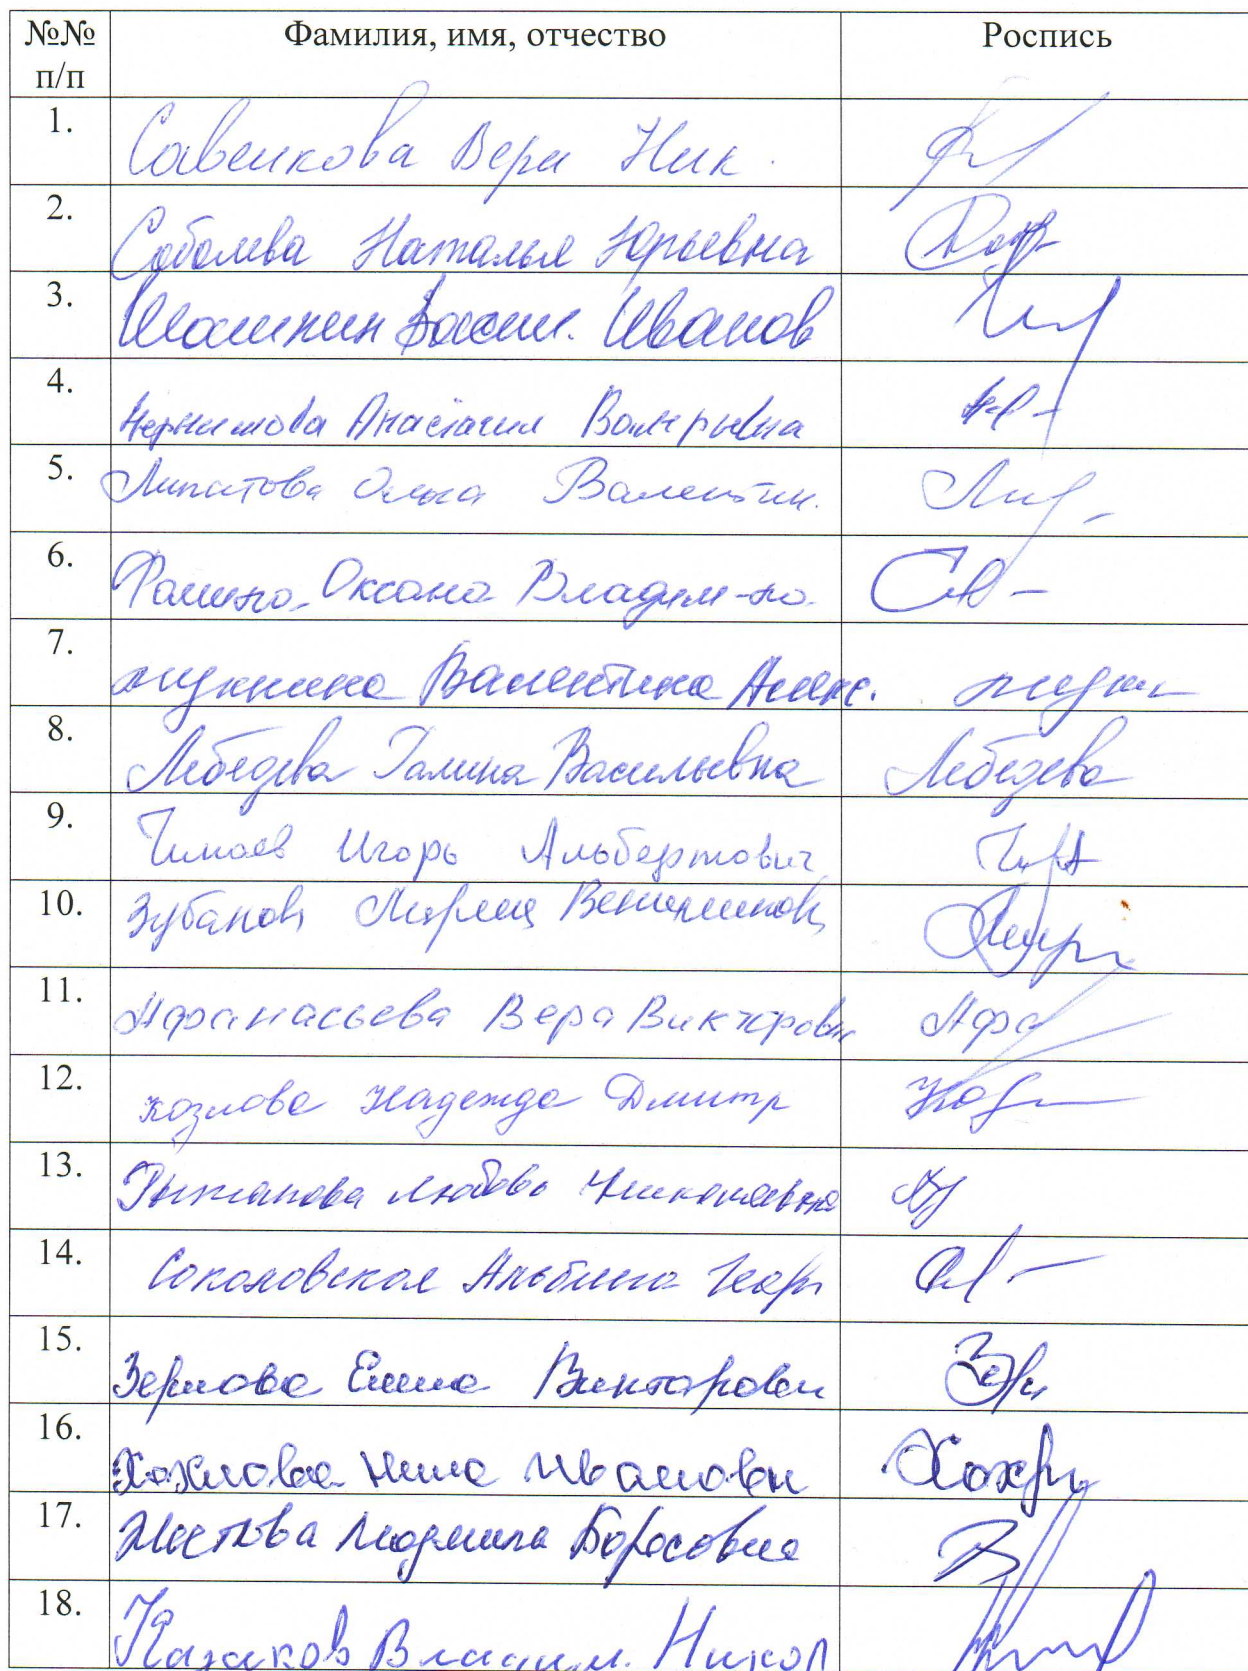 №№ п/п Фамилия, имя, отчество Роспись
1. Савенкова Вера Ник.
2. Соболева Наталья Юрьевна
3. Шашкин Васил. Иванов
4. Анастасия Валерьевна
5. Липатова Ольга Валентин.
6. Фомина Оксана Владим-на.
7. Валентина Алекс.
8. Лебедева Галина Васильевна Лебедева
9. Чимаев Игорь Альбертович
10. Зубанова
11. Афанасьева Вера Викторовн Афа
12. Козлова Надежда Дмитр
13. Любовь Николаевна
14. Соколовская Альбина Георг
15. Зернова Елена Викторовн
16. Хохлова Нина Ивановн
17. Людмила Борисовна
18. Казаков Владим. Никол